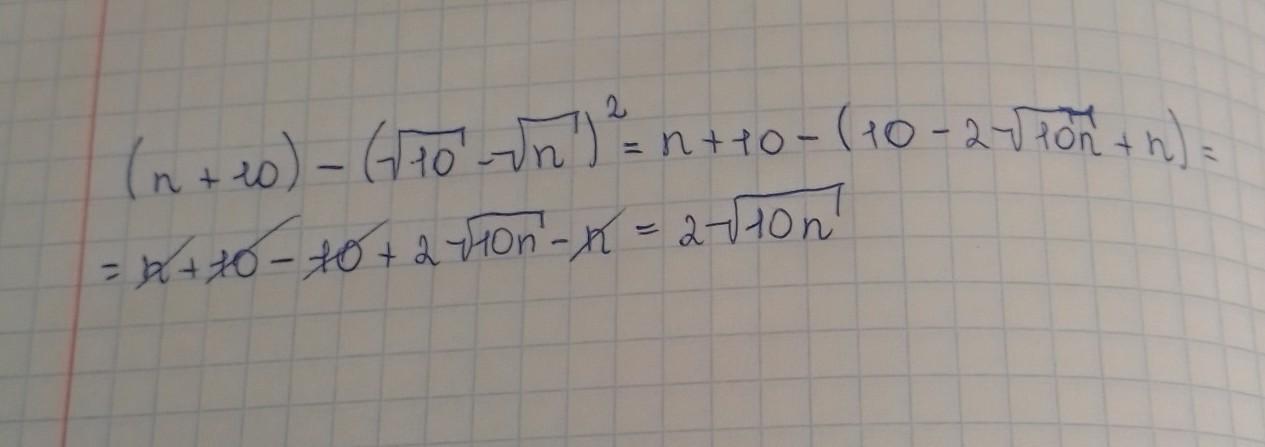 (n + 10) - (√10 - √n)² = n + 10 - (10 - 2√10n + n) =
= n + 10 - 10 + 2√10n - n = 2√10n